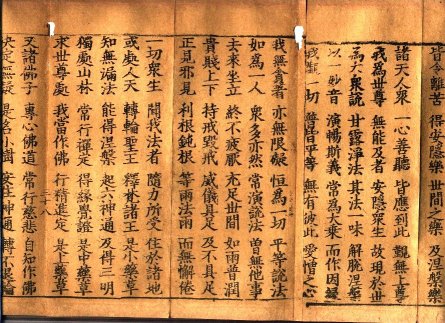 皆令離苦 得安隱樂 世間之樂 及涅槃樂
諸天人衆 一心善聽 皆應到此 覲無上尊
我爲世尊 無能及者 安隱衆生 故現於世
爲大衆說 甘露淨法 其法一味 解脫涅槃
以一妙音 演暢斯義 常爲大乘 而作因緣
我觀一切 普皆平等 無有彼此 愛憎之心
我無貪著 亦無限礙 恒爲一切 平等說法
如爲一人 衆多亦然 常演說法 曾無他事
去來坐立 終不疲厭 充足世間 如雨普潤
貴賤上下 持戒毀戒 威儀具足 及不具足
正見邪見 利根鈍根 等雨法雨 而無懈倦
一切衆生 聞我法者 隨力所受 住於諸地
或處人天 轉輪聖王 釋梵諸王 是小藥草
知無漏法 能得涅槃 起六神通 及得三明
獨處山林 常行禪定 得緣覺證 是中藥草
求世尊處 我當作佛 行精進定 是上藥草
三十八
又諸佛子 專心佛道 常行慈悲 自知作佛
決定無疑 是名小樹 安住神通 轉不退輪